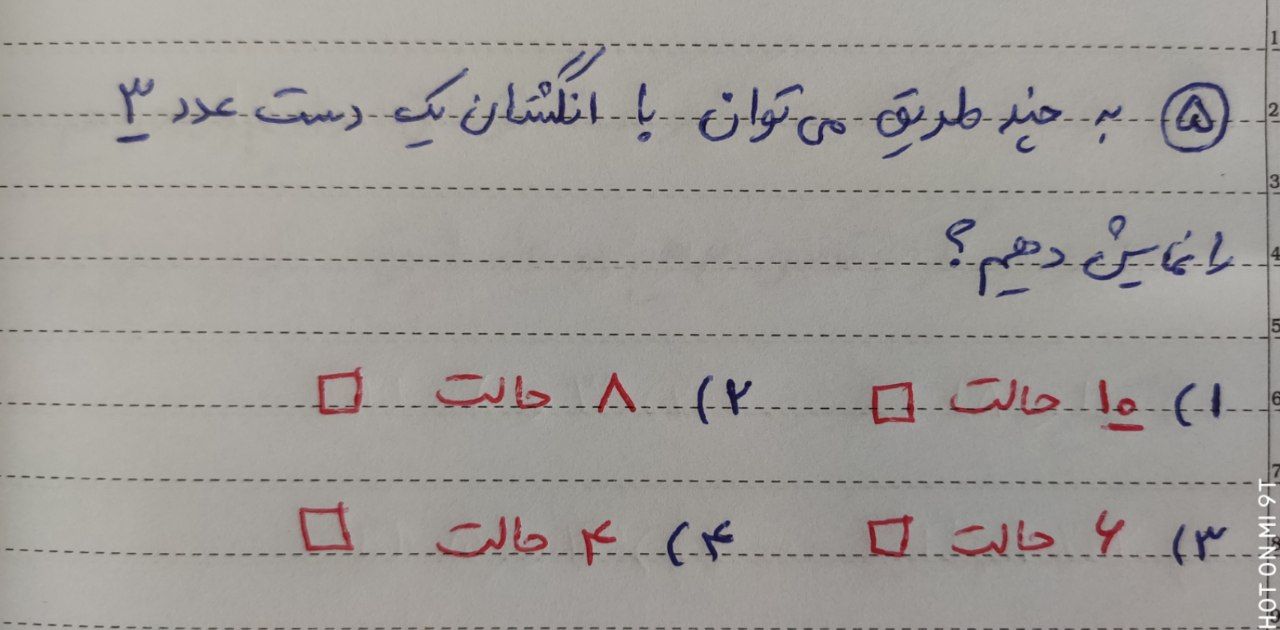 ۵ به چند طریق می توان با انگشتان یک دست عدد ۳
را نمایش دهیم؟
۱) ۱۰ حالت ۲) ۸ حالت
۳) ۶ حالت ۴) ۴ حالت
1
2
3
4
5
6
7
8
9
HOT ON MI 9T